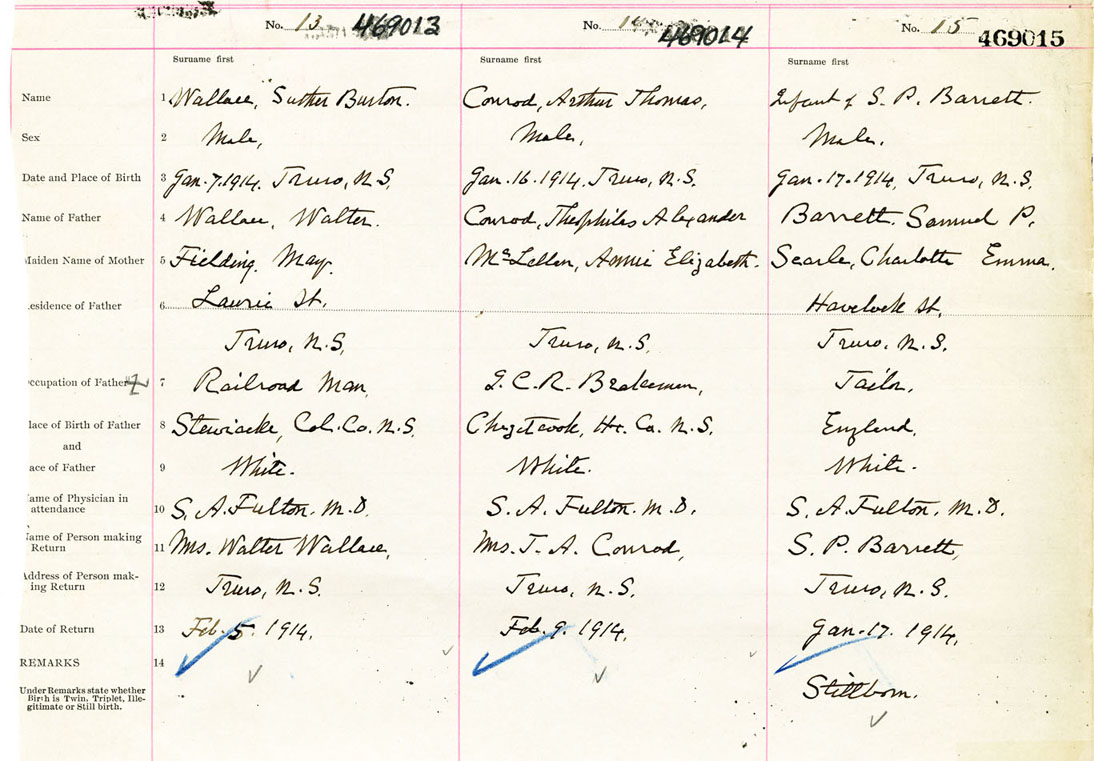 No. 13 469013 No. 14 469014 No. 15 469015
Surname first Surname first Surname first
Name 1 Wallace, Suther Burton. Conrod, Arthur Thomas, Infant of S. P. Barrett.
Sex 2 Male, Male, Male.
Date and Place of Birth 3 Jan. 7. 1914. Truro, N.S. Jan. 16. 1914. Truro, N.S. Jan. 17. 1914, Truro, N.S.
Name of Father 4 Wallace, Walter. Conrod, Theophilas Alexander Barrett. Samuel P.
Maiden Name of Mother 5 Fielding, May. McLellan, Annie Elizabeth. Searle, Charlotte Emma.
esidence of Father 6 Laurie St. Havelock St.
Truro, N.S. Truro, N.S. Truro, N.S.
ccupation of Father 7 Railroad Man, I.C.R. Brakeman, Tailor.
lace of Birth of Father 8 Stewiacke, Col. Co. N.S. Chezetcook, Hx. Co. N.S. England.
and
ace of Father 9 White. White. White.
ame of Physician in
attendance 10 S. A. Fulton. M.D. S. A. Fulton. M.D. S. A. Fulton. M.D.
ame of Person making
Return 11 Mrs. Walter Wallace, Mrs. T. A. Conrod, S. P. Barrett,
Address of Person mak-
ing Return 12 Truro, N.S. Truro, N.S. Truro, N.S.
Date of Return 13 Feb. 5. 1914. Feb. 9. 1914. Jan. 17. 1914.
REMARKS 14
Under Remarks state whether
Birth is Twin, Triplet, Ille-
gitimate or Still birth.
Stillborn.